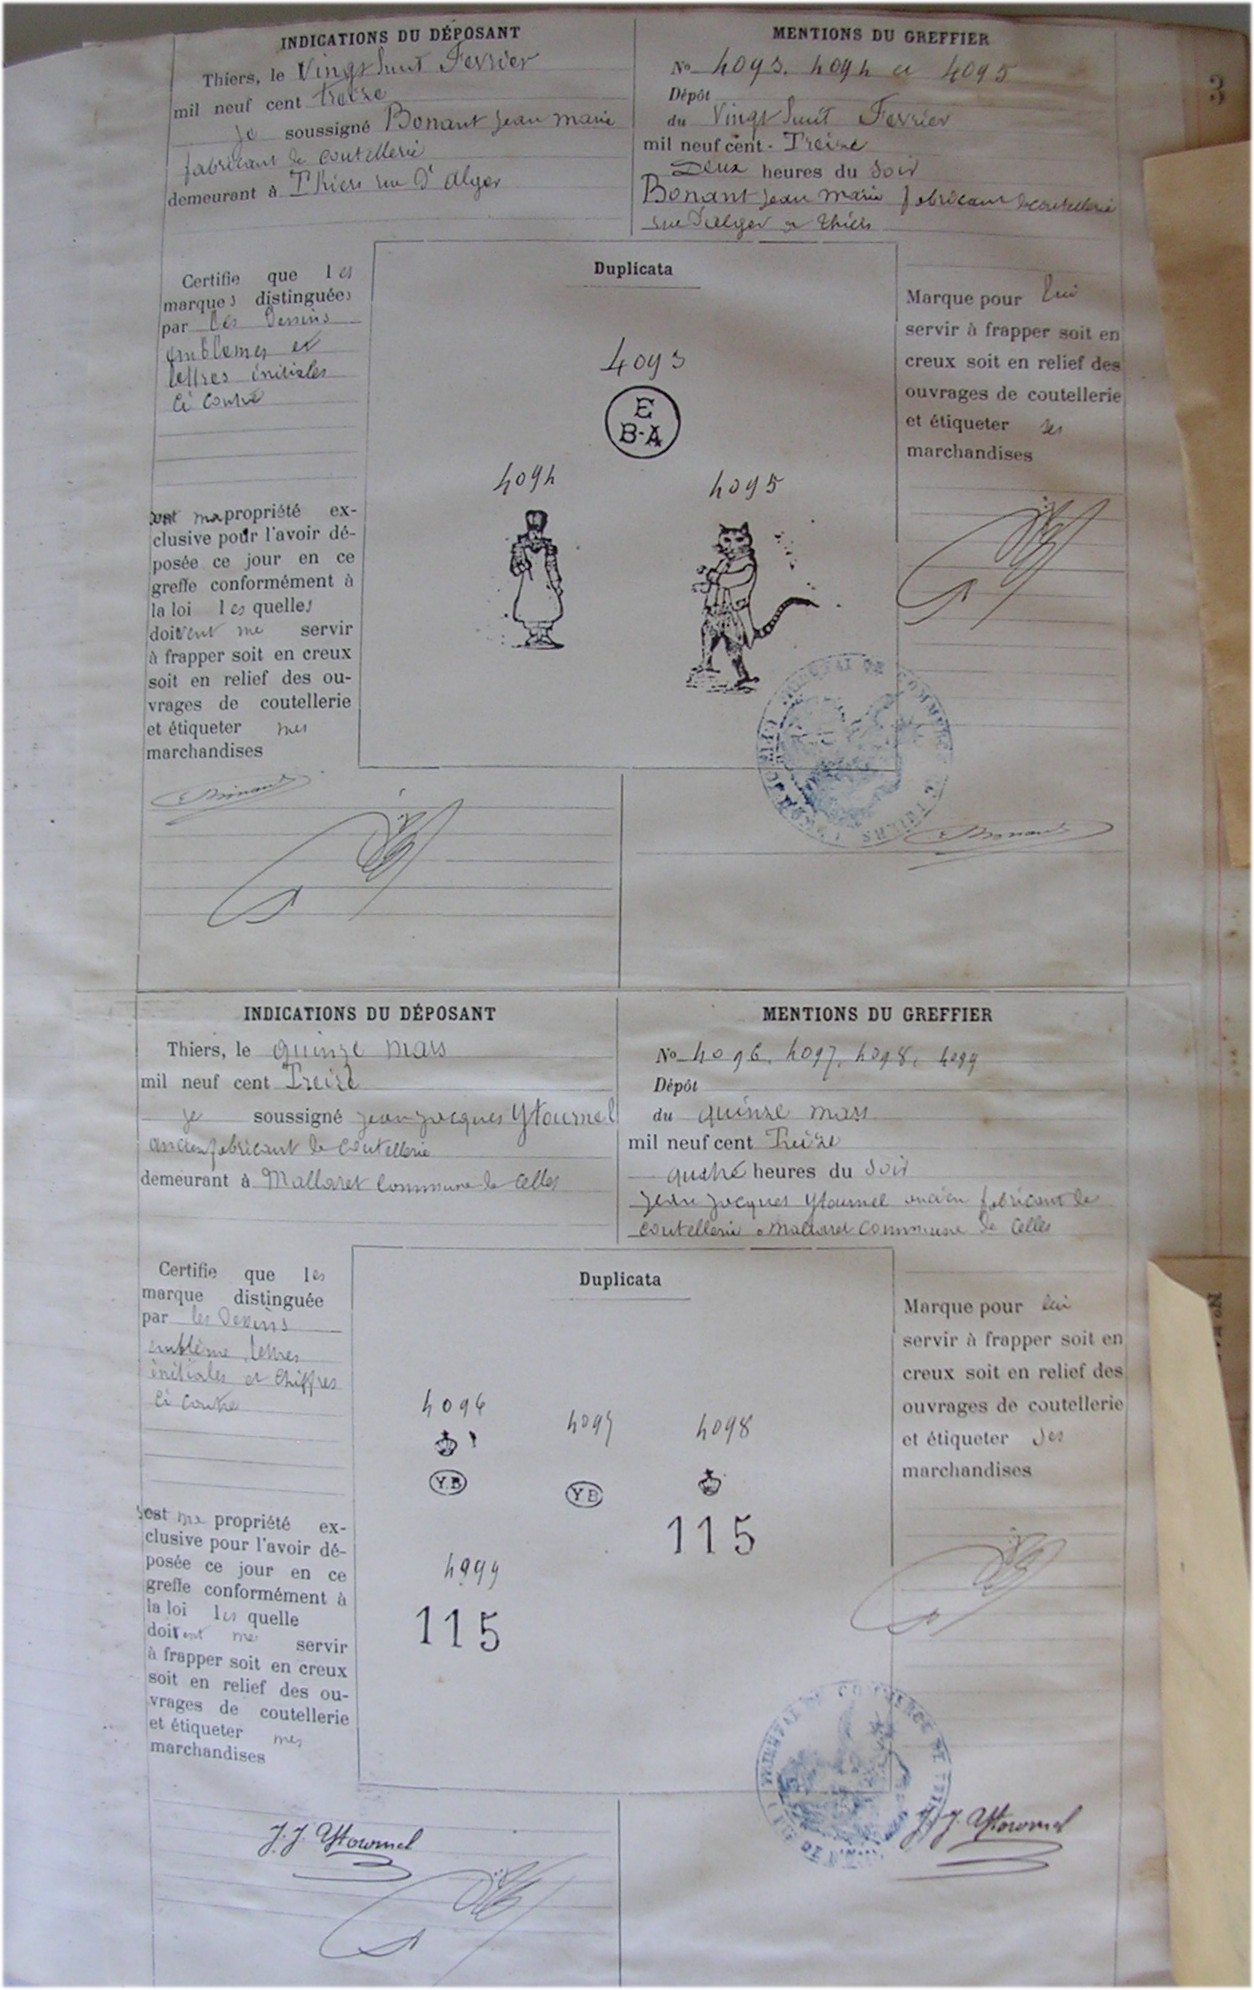 INDICATIONS DU DÉPOSANT
Thiers, le Vingt huit Fevrier
mil neuf cent treize
je soussigné Bonant Jean Marie
fabricant de coutellerie
demeurant à Thiers rue d'Alger
MENTIONS DU GREFFIER
No 4093, 4094 et 4095
Dépôt
du Vingt huit Fevrier
mil neuf cent Treize
Deux heures du soir
Bonant Jean Marie fabricant de coutellerie
rue d'alger a thiers
Certifie que les
marques distinguées
par les Dessins
emblemes et
lettres initiales
ci contre
sont ma propriété ex-
clusive pour l'avoir dé-
posée ce jour en ce
greffe conformément à
la loi les quelles
doivent me servir
à frapper soit en creux
soit en relief des ou-
vrages de coutellerie
et étiqueter mes
marchandises
Duplicata
4093
E
B-A
4094
4095
Marque pour lui
servir à frapper soit en
creux soit en relief des
ouvrages de coutellerie
et étiqueter ses
marchandises
3
INDICATIONS DU DÉPOSANT
Thiers, le quinze mars
mil neuf cent Treize
je soussigné jean jacques Ytournel
ancien fabricant de coutellerie
demeurant à Mallaret commune de Celles
MENTIONS DU GREFFIER
No 4096, 4097, 4098, 4099
Dépôt
du quinze mars
mil neuf cent Treize
quatre heures du soir
jean jacques Ytournel ancien fabricant de
coutellerie a Mallaret commune de Celles
Certifie que les
marque distinguée
par les Dessins
emblème, lettres
initiales et chiffres
ci contre
sont ma propriété ex-
clusive pour l'avoir dé-
posée ce jour en ce
greffe conformément à
la loi les quelle
doivent me servir
à frapper soit en creux
soit en relief des ou-
vrages de coutellerie
et étiqueter mes
marchandises
Duplicata
4096
Y.B
4097
Y B
4098
115
4099
115
Marque pour lui
servir à frapper soit en
creux soit en relief des
ouvrages de coutellerie
et étiqueter ses
marchandises
J. J. Ytournel
J. J. Ytournel